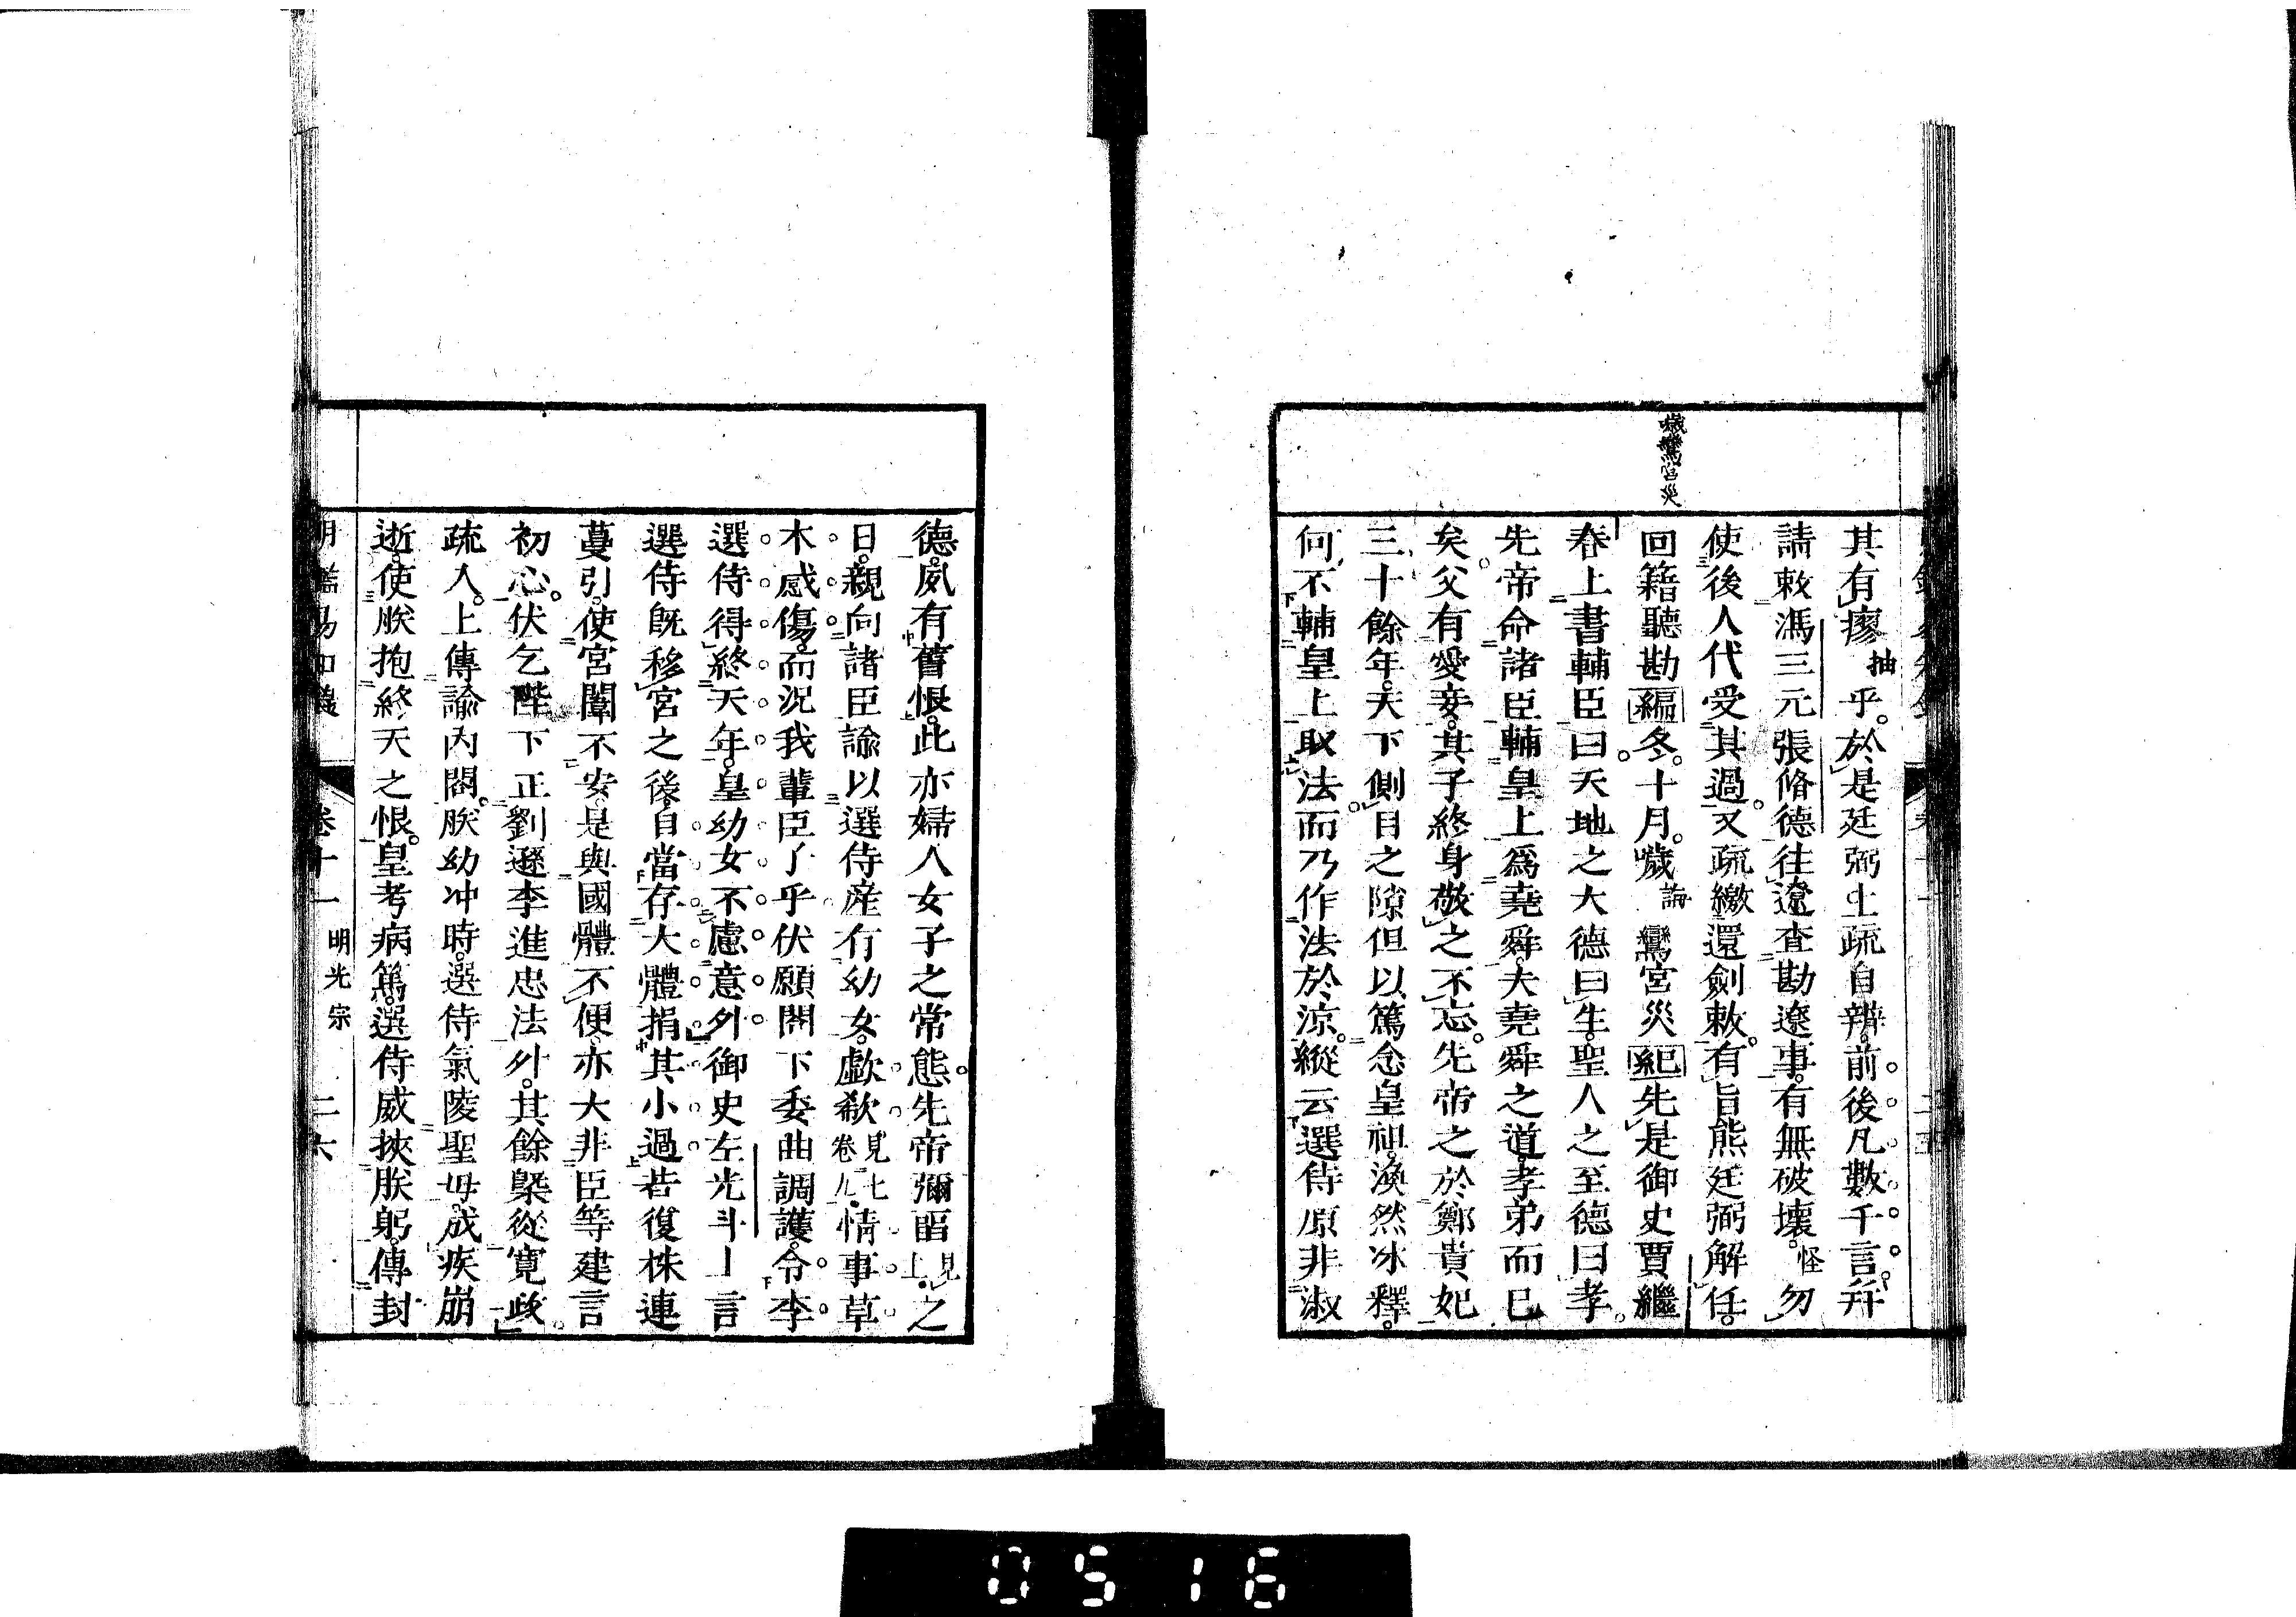 噦鸞宮災
其有瘳抽乎。於是廷弼上疏自辨。前後凡數千言。幷
請敕馮三元張脩德往遼査勘遼事。有無破壞。怪勿
使後人代受其過。又疏繳還劍敕。有旨熊廷弼解任。
回籍聽勘編冬。十月。噦誨鸞宮災紀先是御史賈繼
春上書輔臣曰天地之大德曰生。聖人之至德曰孝。
先帝命諸臣輔皇上爲堯舜。夫堯舜之道。孝弟而已
矣。父有愛妾。其子終身敬之不忘。先帝之於鄭貴妃
三十餘年。天下側目之隙但以篤念皇祖。渙然冰釋。
何不輔皇上取法。而乃作法於涼。縱云選侍原非淑
德。夙有舊恨。此亦婦人女子之常態。先帝彌留見上。之
日。親向諸臣諭以選侍產有幼女。歔欷見七卷八。情事草
木感傷。而況我輩臣子乎伏願閣下委曲調護。令李
選侍得終天年。皇幼女不慮意外御史左光斗上言
選侍旣移宮之後。自當存大體捐其小過若復株連
蔓引。使宮闈不安。是與國體不便。亦大非臣等建言
初心。伏乞陛下正劉遜李進忠法外。其餘槩從寬政。
疏入。上傳諭內閣。朕幼冲時。選侍氣陵聖母。成疾崩
逝。使朕抱終天之恨。皇考病篤。選侍威挾朕躬。傳封
卷十一 明光宗 二六
0516